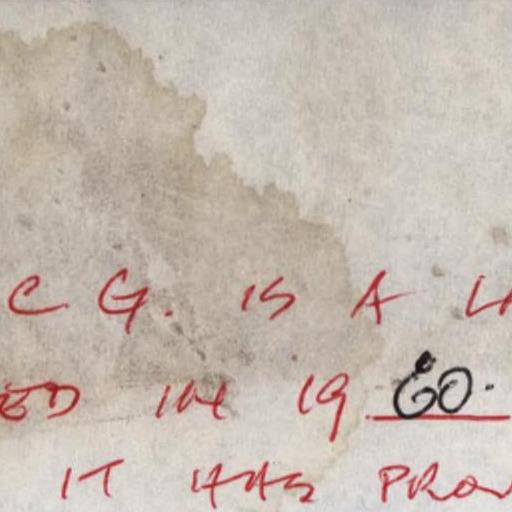 C. G. IS A
ED IN 1960.
IT HAS